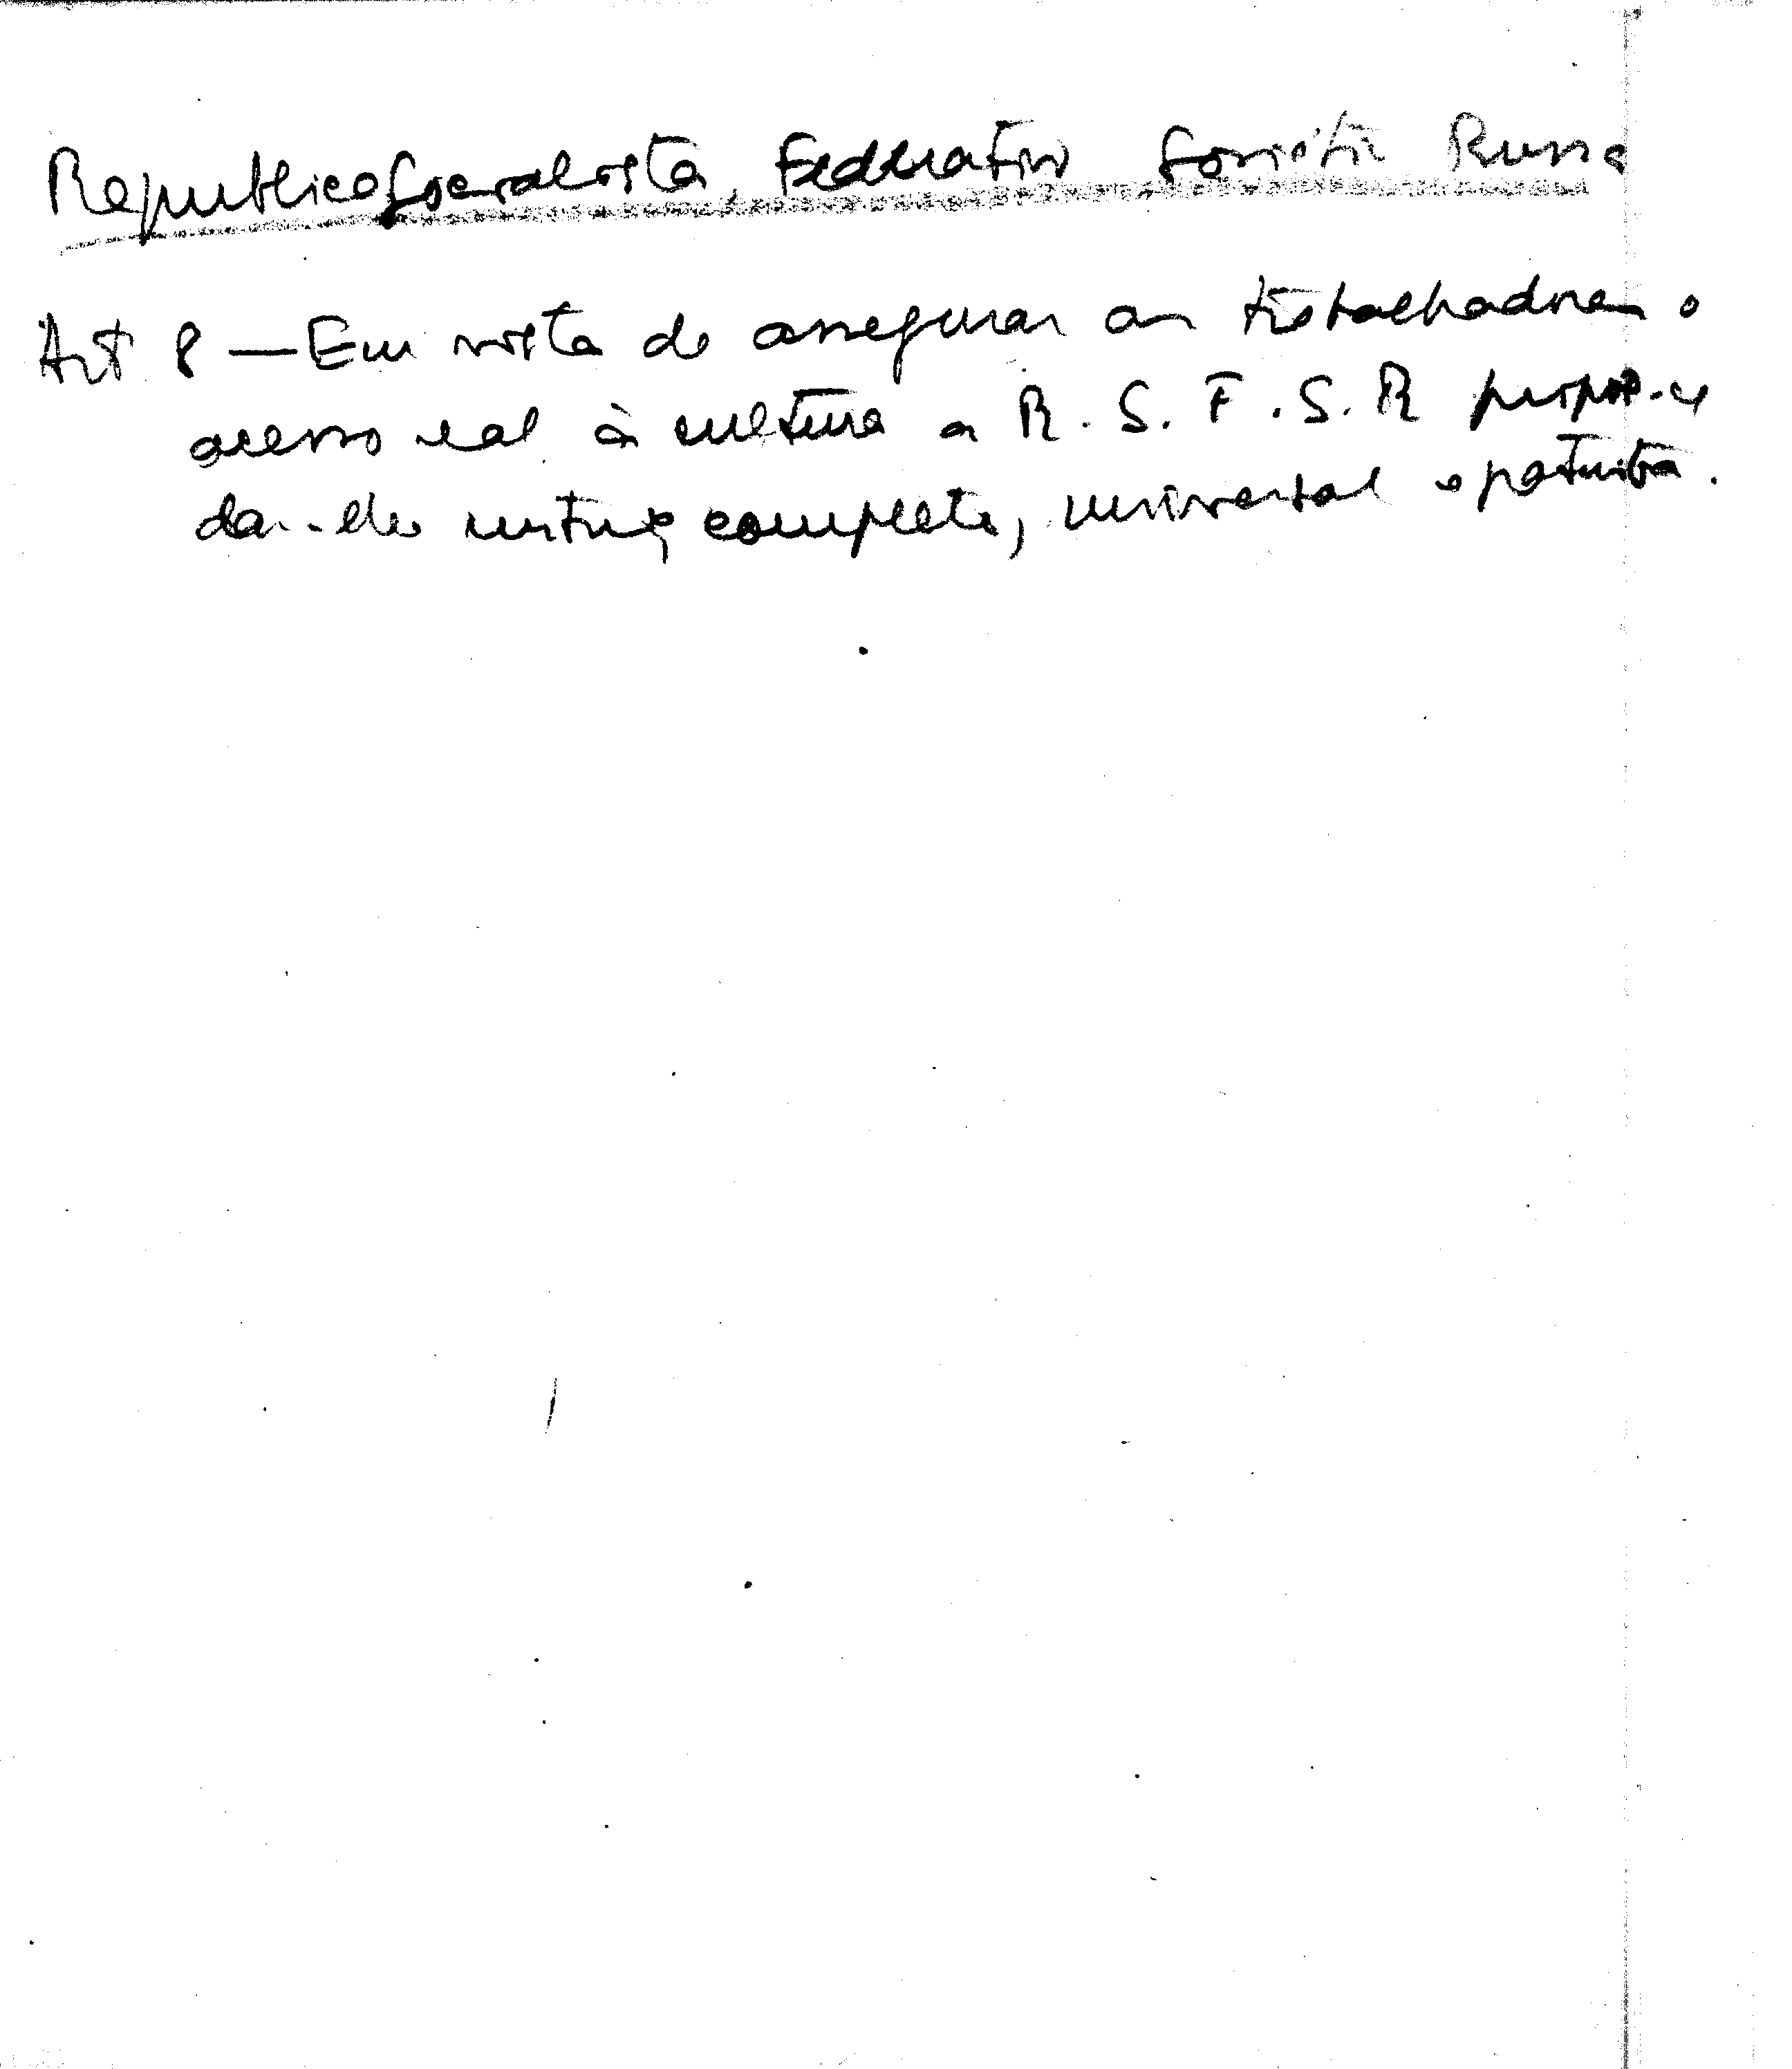 Republica Socialista, Federativa Soviética Russa
Art 8 — Em vista de assegurar aos trabalhadores o
acesso real à cultura a R. S. F. S. R propõe-se
dar-lhes instrução completa, universal e gratuita.